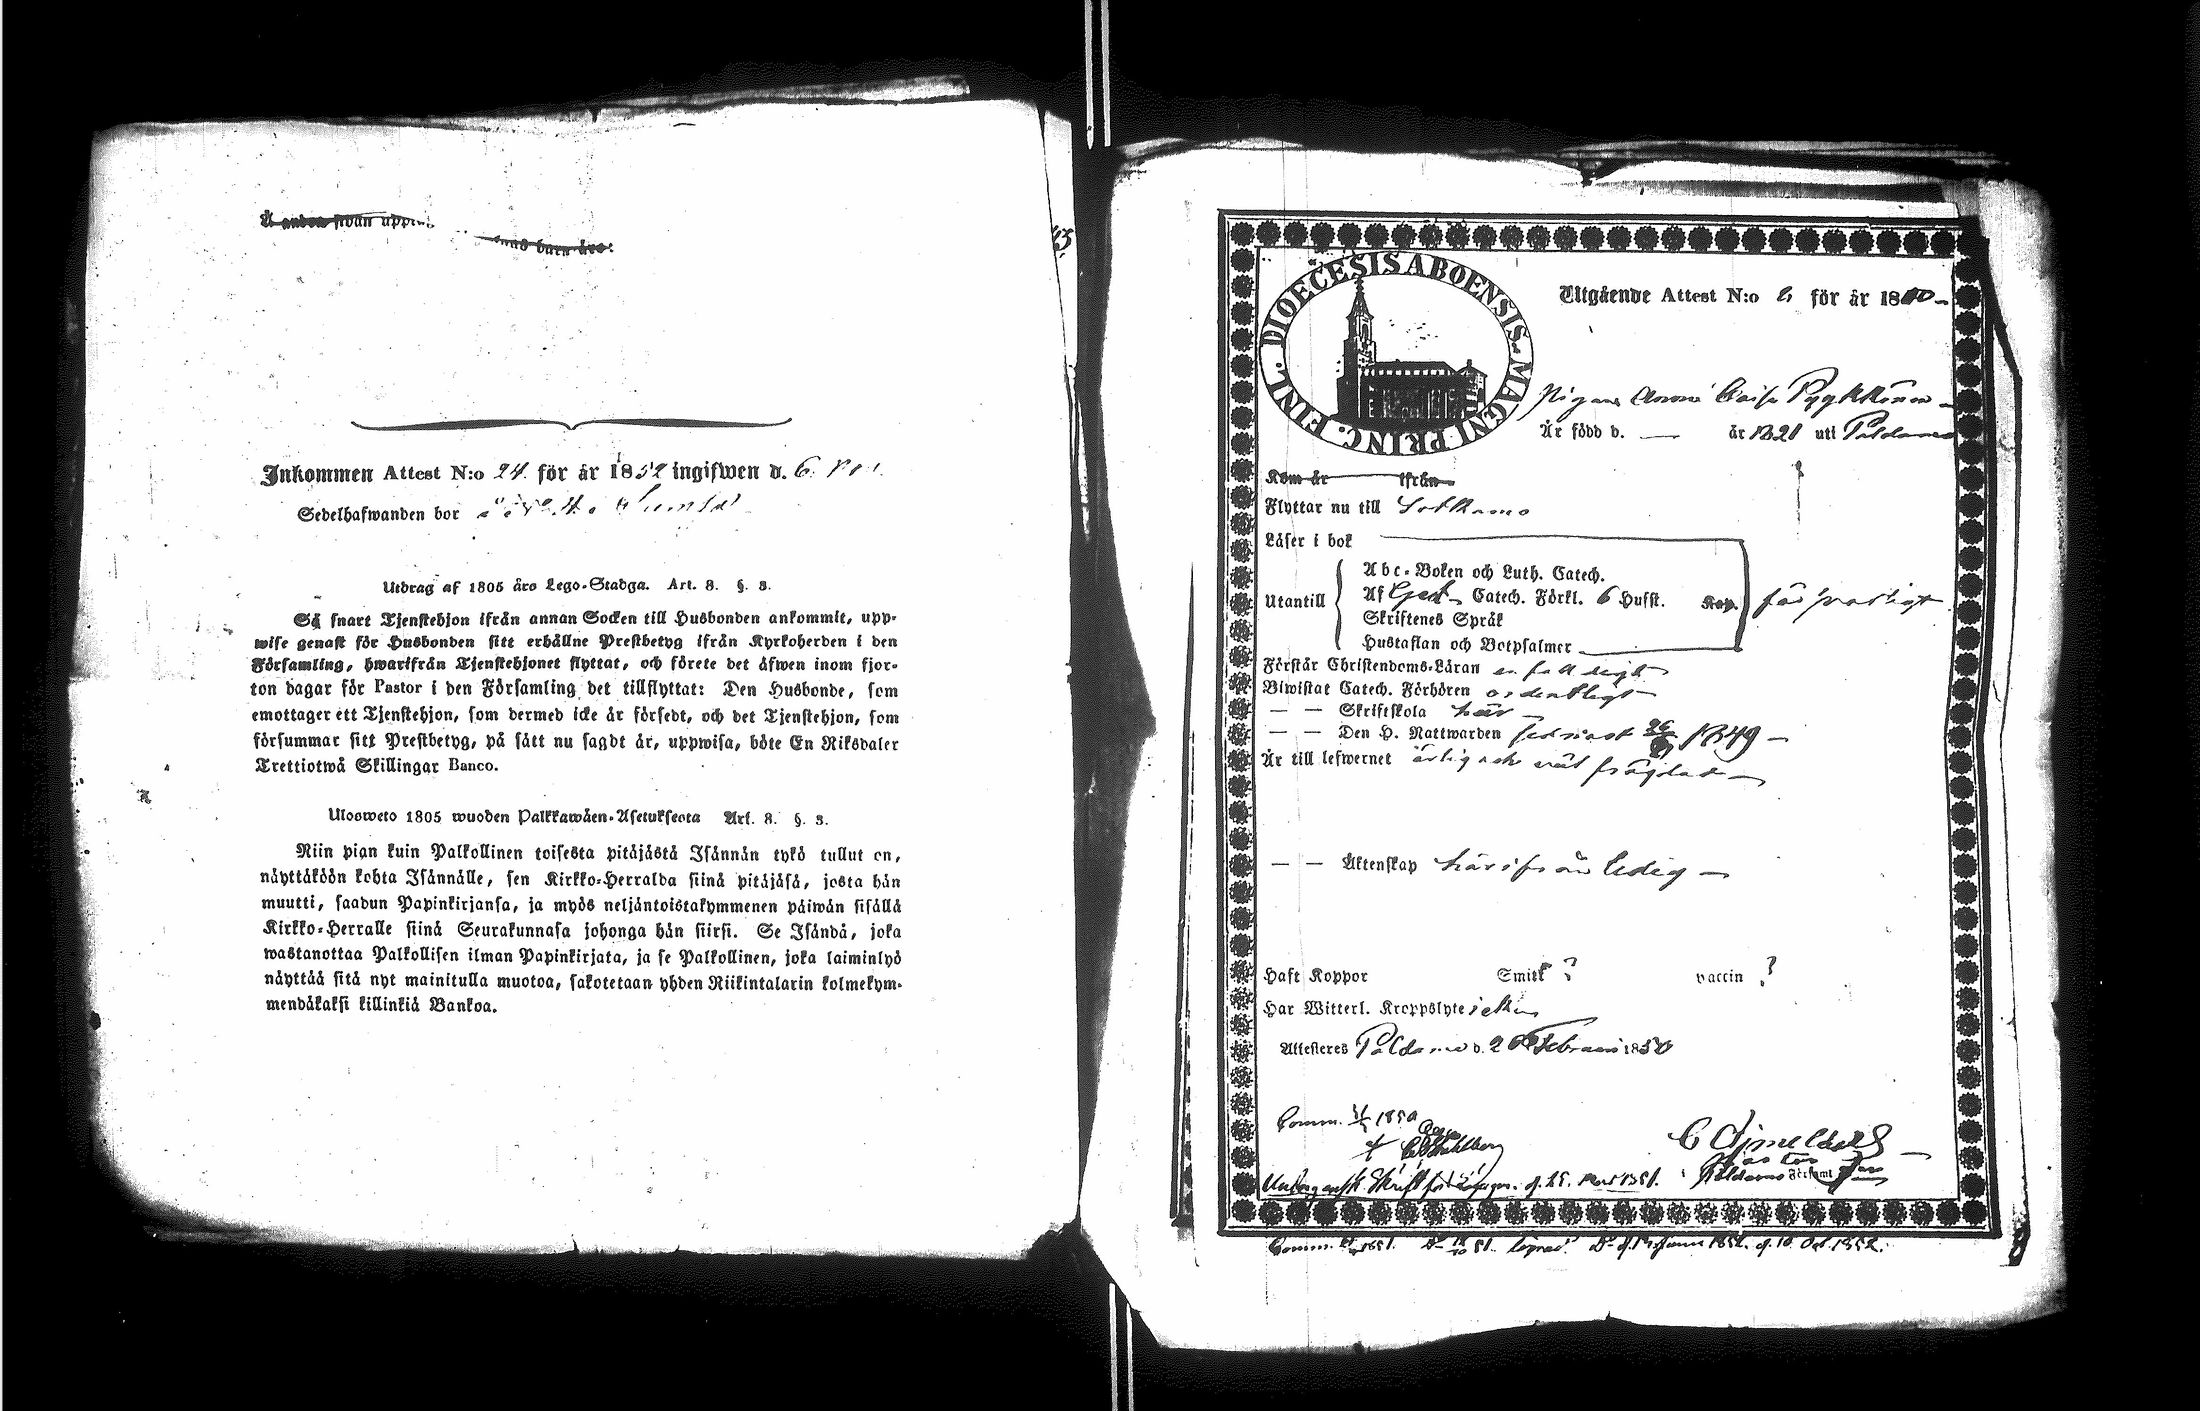 Å andra sidan uppt
nas barn äro:
Inkommen Attest N:o 24 för år 1852 ingifwen d. 6
Sedelhafwanden bor
Utdrag af 1805 års Lego-Stadga. Art. 8. §. 3.
Så snart Tjenstehjon ifrån annan Socken till Husbonden ankommit, upp-
wise genast för Husbonden sitt erhållne Prestbetyg ifrån Kyrkoherden i den
Församling, hwarifrån Tjenstehjonet flyttat, och förete det äfwen inom fjor-
ton dagar för Pastor i den Församling det tillflyttat: Den Husbonde, som
emottager ett Tjenstehjon, som dermed icke är försedt, och det Tjenstehjon, som
försummar sitt Prestbetyg, på sätt nu sagdt är, uppwisa, böte En Riksdaler
Trettiotwå Skillingar Banco.
Ulosweto 1805 wuoden Palkkawäen-Asetuksesta Art. 8. §. 3.
Niin pian kuin Palkollinen toisesta pitäjästä Isännän tykö tullut on,
näyttäköön kohta Isännälle, sen Kirkko-Herralda siinä pitäjäsä, josta hän
muutti, saadun Papinkirjansa, ja myös neljäntoistakymmenen päiwän sisällä
Kirkko-Herralle siinä Seurakunnasa johonga hän siirsi. Se Isändä, joka
wastanottaa Palkollisen ilman Papinkirjata, ja se Palkollinen, joka laiminlyö
näyttää sitä nyt mainitulla muotoa, sakotetaan yhden Riikintalarin kolmekym-
mendäkaksi killinkiä Bankoa.
DIOECESIS ABOENSIS MAGNI PRINC. FINL.
Utgående Attest N:o 6 för år 1850
Pigan Anna Caisa Pyykköinen
Är född d. — år 1821 uti Paldamo
Kom år ifrån
Flyttar nu till Sotkamo
Läser i bok
Abc-Boken och Luth. Catech.
Utantill Af Catech. Förkl. 6 Hufst. Kap. försvarligt
Skriftenes Språk
Hustaflan och Botpsalmer
Förstår Christendoms-Läran enfaldigt
Biwistat Catech. Förhören ordentligt
— — Skriftskola här
— — Den H. Nattwarden sednast 1849 —
Är till lefwernet ärlig och väl frägdad
— — Äktenskap härifrån ledig —
Haft Koppor Smitt ? vaccin ?
Har Witterl. Kroppslyte icke
Attesteres Paldamo d. 26 Februari 1850
Comm. 1850
Pastor
Paldamo Församl
Undergått Skrift d. 25. Mars 1851.
Comm. 1851. 51. d. 10 Oct. 1852.